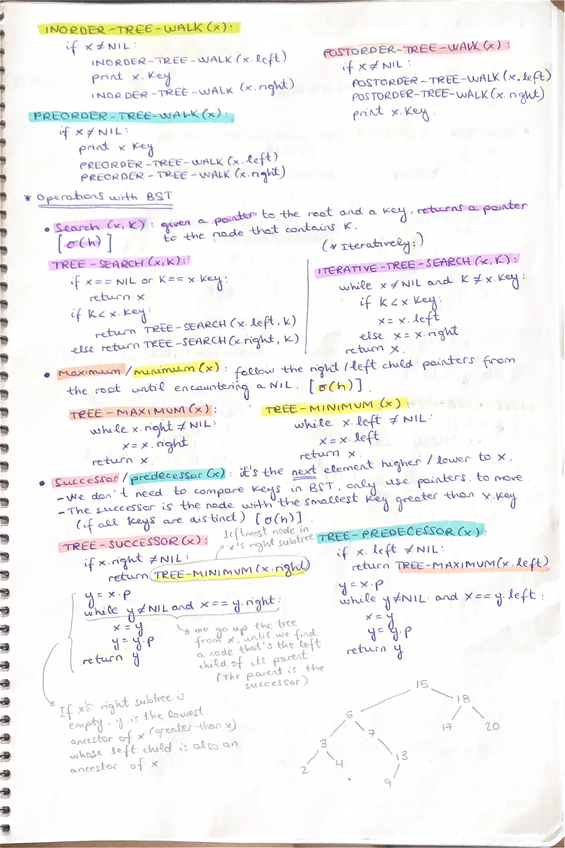 INORDER-TREE-WALK(x):
if x≠NIL:
INORDER-TREE-WALK(x.left)
print x.key
INORDER-TREE-WALK(x.right)
POSTORDER-TREE-WALK(x):
if x≠NIL:
POSTORDER-TREE-WALK(x.left)
POSTORDER-TREE-WALK(x.right)
print x.key.
PREORDER-TREE-WALK(x):
if x≠NIL:
print x key
PREORDER-TREE-WALK(x.left)
PREORDER-TREE-WALK(x.right)
* Operations with BST
• Search (x,K): given a pointer to the root and a key, returns a pointer
[σ(h)] to the node that contains K.
(* Iteratively:)
TREE-SEARCH(x,K):
if x== NIL or K== x.key:
return x
if K<x.key:
return TREE-SEARCH(x.left, K)
else return TREE-SEARCH(x.right, K)
ITERATIVE-TREE-SEARCH(x,K):
while x≠NIL and K≠x.key:
if K<x key:
x=x.left
else x=x.right
return x.
• Maximum/minimum(x): follow the right/left child pointers from
the root until encountering a NIL. [σ(h)].
TREE-MAXIMUM(x):
while x.right≠NIL:
x=x.right
return x.
TREE-MINIMUM(x):
while x.left≠NIL:
x=x.left
return x.
• Successor/predecessor(x): it's the next element higher/lower to x.
-We don't need to compare keys in BST, only use pointers to move
-The successor is the node with the smallest key greater than x.key
(if all keys are distinct) [σ(h)]
leftmost node in
x's right subtree
TREE-SUCCESSOR(x):
if x.right≠NIL:
return TREE-MINIMUM(x.right)
y=x.p
while y≠NIL and x==y.right:
x=y
y=y.p
return y
we go up the tree
from x, until we find
a node that's the left
child of its parent
(The parent is the
successor)
TREE-PREDECESSOR(x):
if x.left≠NIL:
return TREE-MAXIMUM(x.left)
y=x.p
while y≠NIL and x==y.left:
x=y
y=y.p
return y
If x's right subtree is
empty, y is the lowest
ancestor of x (greater than x)
whose left child is also an
ancestor of x
15
6 18
3 7 17 20
2 4 13
9